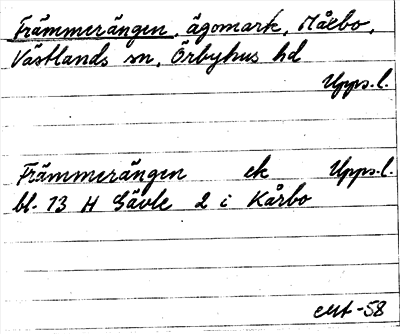 Främmerängen, ägomark, Måebo,
Västlands sn, Örbyhus hd
Upps.l.
Främmerängen ek Upps.l.
bl. 13 H Gävle 2 i Kårbo
-58